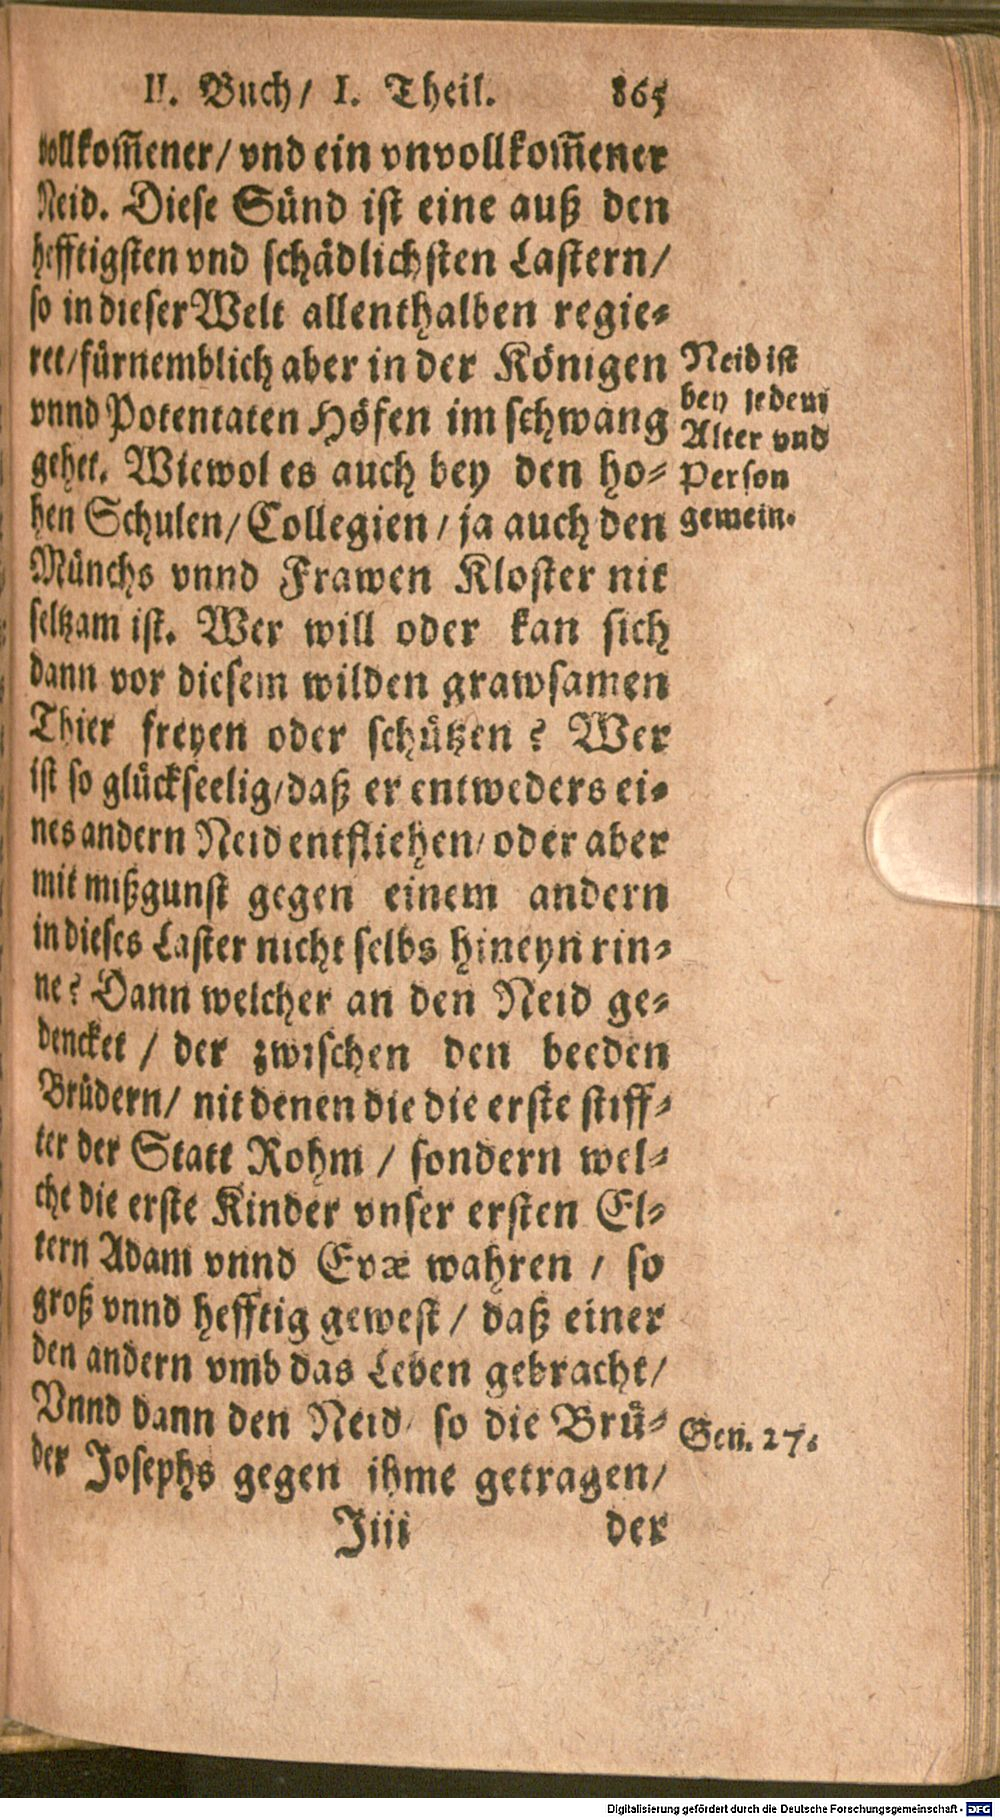 II. Buch/ I. Theil. 865
vollkom̃ener/ vnd ein vnvollkom̃ener
Neid. Diese Sünd ist eine auß den
hefftigsten vnd schädlichsten Lastern/
so in dieser Welt allenthalben regie-
ret/ fürnemblich aber in der Königen
vnnd Potentaten Höfen im schwang
gehet. Wiewol es auch bey den ho-
hen Schulen/ Collegien/ ja auch den
Münchs vnnd Frawen Kloster nit
seltzam ist. Wer will oder kan sich
dann vor diesem wilden grawsamen
Thier freyen oder schützen? Wer
ist so glückseelig/ daß er entweders ei-
nes andern Neid entfliehen/ oder aber
mit mißgunst gegen einem andern
in dieses Laster nicht selbs hineyn rin-
ne? Dann welcher an den Neid ge-
dencket / der zwischen den beeden
Brüdern/ nit denen die die erste stiff-
ter der Statt Rohm / sondern wel-
che die erste Kinder vnser ersten El-
tern Adam vnnd Evæ wahren / so
groß vnnd hefftig gewest / daß einer
den andern vmb das Leben gebracht/
Vnnd dann den Neid/ so die Brü-
der Josephs gegen ihme getragen/
Jiii der
Neid ist
bey jedem
Alter vnd
Person
gemein.
Gen. 27.
Digitalisierung gefördert durch die Deutsche Forschungsgemeinschaft - DFG